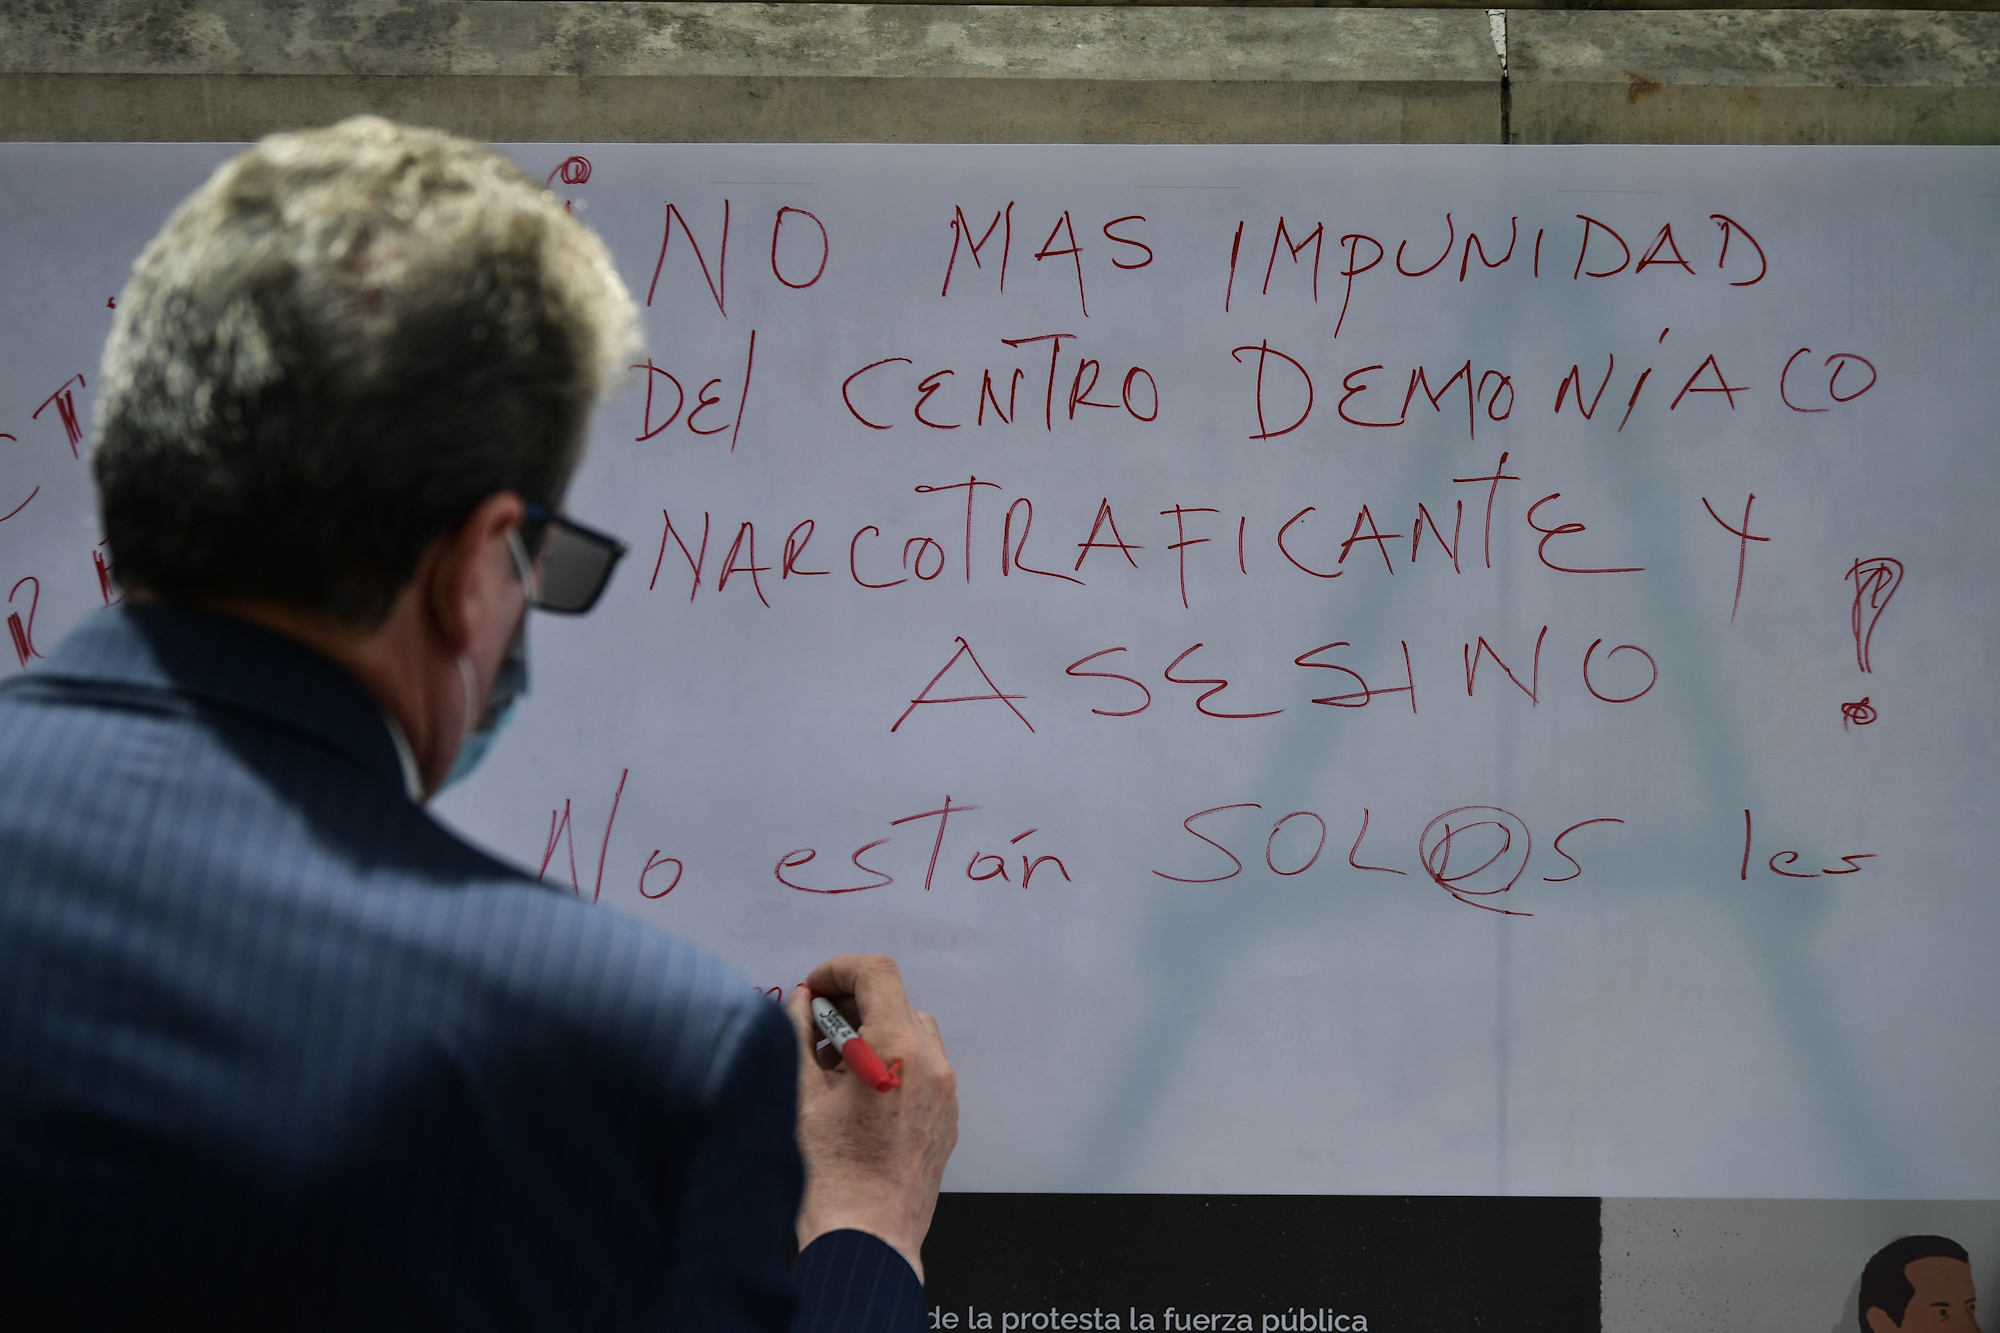 ¡ NO MAS IMPUNIDAD
DEl CENTRO DEMONÍACO
NARCOTRAFICANTE Y
ASESINO !
No están SOL@S les
de la protesta la fuerza pública